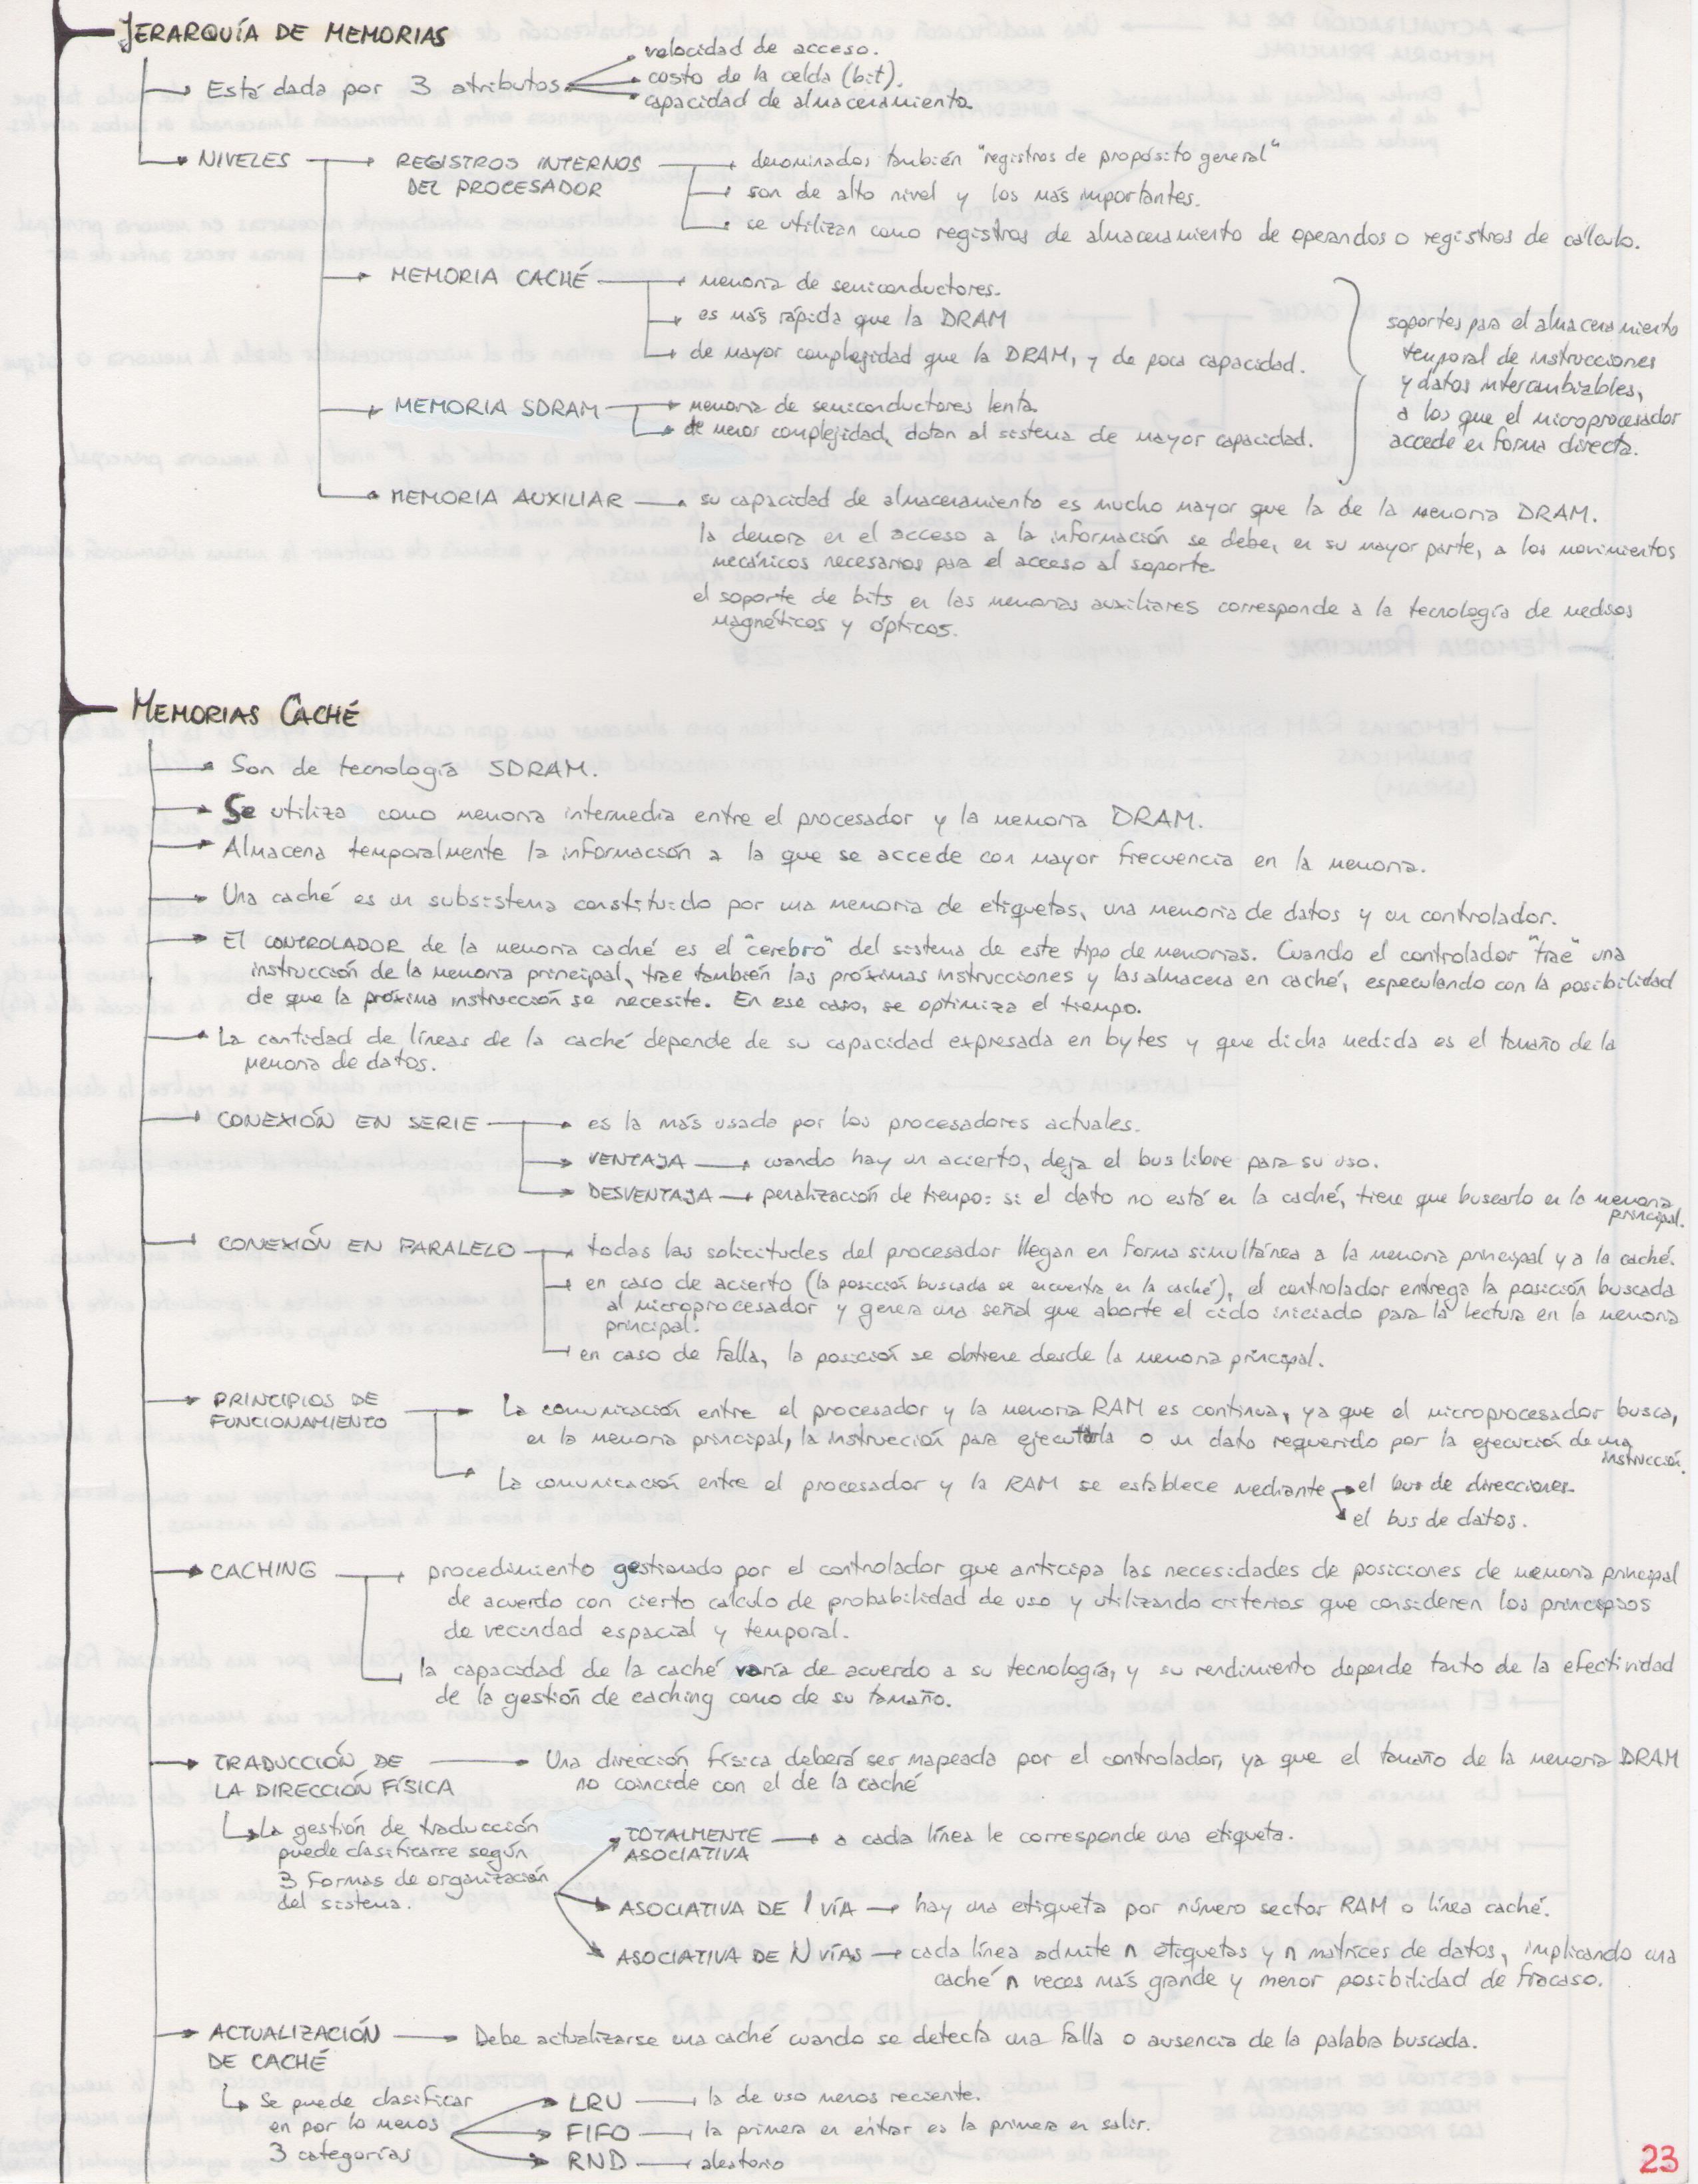 JERARQUÍA DE MEMORIAS
Está dada por 3 atributos
velocidad de acceso.
costo de la celda (bit).
capacidad de almacenamiento.
NIVELES
REGISTROS INTERNOS
DEL PROCESADOR
denominados también "registros de propósito general"
son de alto nivel y los más importantes.
se utilizan como registros de almacenamiento de operandos o registros de cálculo.
MEMORIA CACHÉ
memoria de semiconductores.
es más rápida que la DRAM
de mayor complejidad que la DRAM, y de poca capacidad.
MEMORIA SDRAM
memoria de semiconductores lenta.
de menor complejidad, dotan al sistema de mayor capacidad.
soportes para el almacenamiento
temporal de instrucciones
y datos intercambiables,
a los que el microprocesador
accede en forma directa.
MEMORIA AUXILIAR
su capacidad de almacenamiento es mucho mayor que la de la memoria DRAM.
la demora en el acceso a la información se debe, en su mayor parte, a los movimientos
mecánicos necesarios para el acceso al soporte.
el soporte de bits en las memorias auxiliares corresponde a la tecnología de medios
magnéticos y ópticos.
MEMORIAS CACHÉ
Son de tecnología SDRAM.
Se utiliza como memoria intermedia entre el procesador y la memoria DRAM.
Almacena temporalmente la información a la que se accede con mayor frecuencia en la memoria.
Una caché es un subsistema constituido por una memoria de etiquetas, una memoria de datos y un controlador.
El CONTROLADOR de la memoria caché es el "cerebro" del sistema de este tipo de memorias. Cuando el controlador "trae" una
instrucción de la memoria principal, trae también las próximas instrucciones y las almacena en caché, especulando con la posibilidad
de que la próxima instrucción se necesite. En ese caso, se optimiza el tiempo.
La cantidad de líneas de la caché depende de su capacidad expresada en bytes y que dicha medida es el tamaño de la
memoria de datos.
CONEXIÓN EN SERIE
es la más usada por los procesadores actuales.
VENTAJA
cuando hay un acierto, deja el bus libre para su uso.
DESVENTAJA
penalización de tiempo: si el dato no está en la caché, tiene que buscarlo en la memoria
principal.
CONEXIÓN EN PARALELO
todas las solicitudes del procesador llegan en forma simultánea a la memoria principal y a la caché.
en caso de acierto (la posición buscada se encuentra en la caché), el controlador entrega la posición buscada
al microprocesador y genera una señal que aborte el ciclo iniciado para la lectura en la memoria
principal.
en caso de falla, la posición se obtiene desde la memoria principal.
PRINCIPIOS DE
FUNCIONAMIENTO
La comunicación entre el procesador y la memoria RAM es continua, ya que el microprocesador busca,
en la memoria principal, la instrucción para ejecutarla o un dato requerido por la ejecución de una
instrucción.
La comunicación entre el procesador y la RAM se establece mediante
el bus de direcciones.
el bus de datos.
CACHING
procedimiento gestionado por el controlador que anticipa las necesidades de posiciones de memoria principal
de acuerdo con cierto calculo de probabilidad de uso y utilizando criterios que consideren los principios
de vecindad espacial y temporal.
la capacidad de la caché varía de acuerdo a su tecnología, y su rendimiento depende tanto de la efectividad
de la gestión de caching como de su tamaño.
TRADUCCIÓN DE
LA DIRECCIÓN FÍSICA
Una dirección física deberá ser mapeada por el controlador, ya que el tamaño de la memoria DRAM
no coincide con el de la caché
La gestión de traducción
puede clasificarse según
3 formas de organización
del sistema.
TOTALMENTE
ASOCIATIVA
a cada línea le corresponde una etiqueta.
ASOCIATIVA DE 1 VÍA
hay una etiqueta por número sector RAM o línea caché.
ASOCIATIVA DE N VÍAS
cada línea admite n etiquetas y n matrices de datos, implicando una
caché n veces más grande y menor posibilidad de fracaso.
ACTUALIZACIÓN
DE CACHÉ
Debe actualizarse una caché cuando se detecta una falla o ausencia de la palabra buscada.
Se puede clasificar
en por lo menos
3 categorías
LRU
la de uso menos reciente.
FIFO
la primera en entrar es la primera en salir.
RND
aleatorio
23